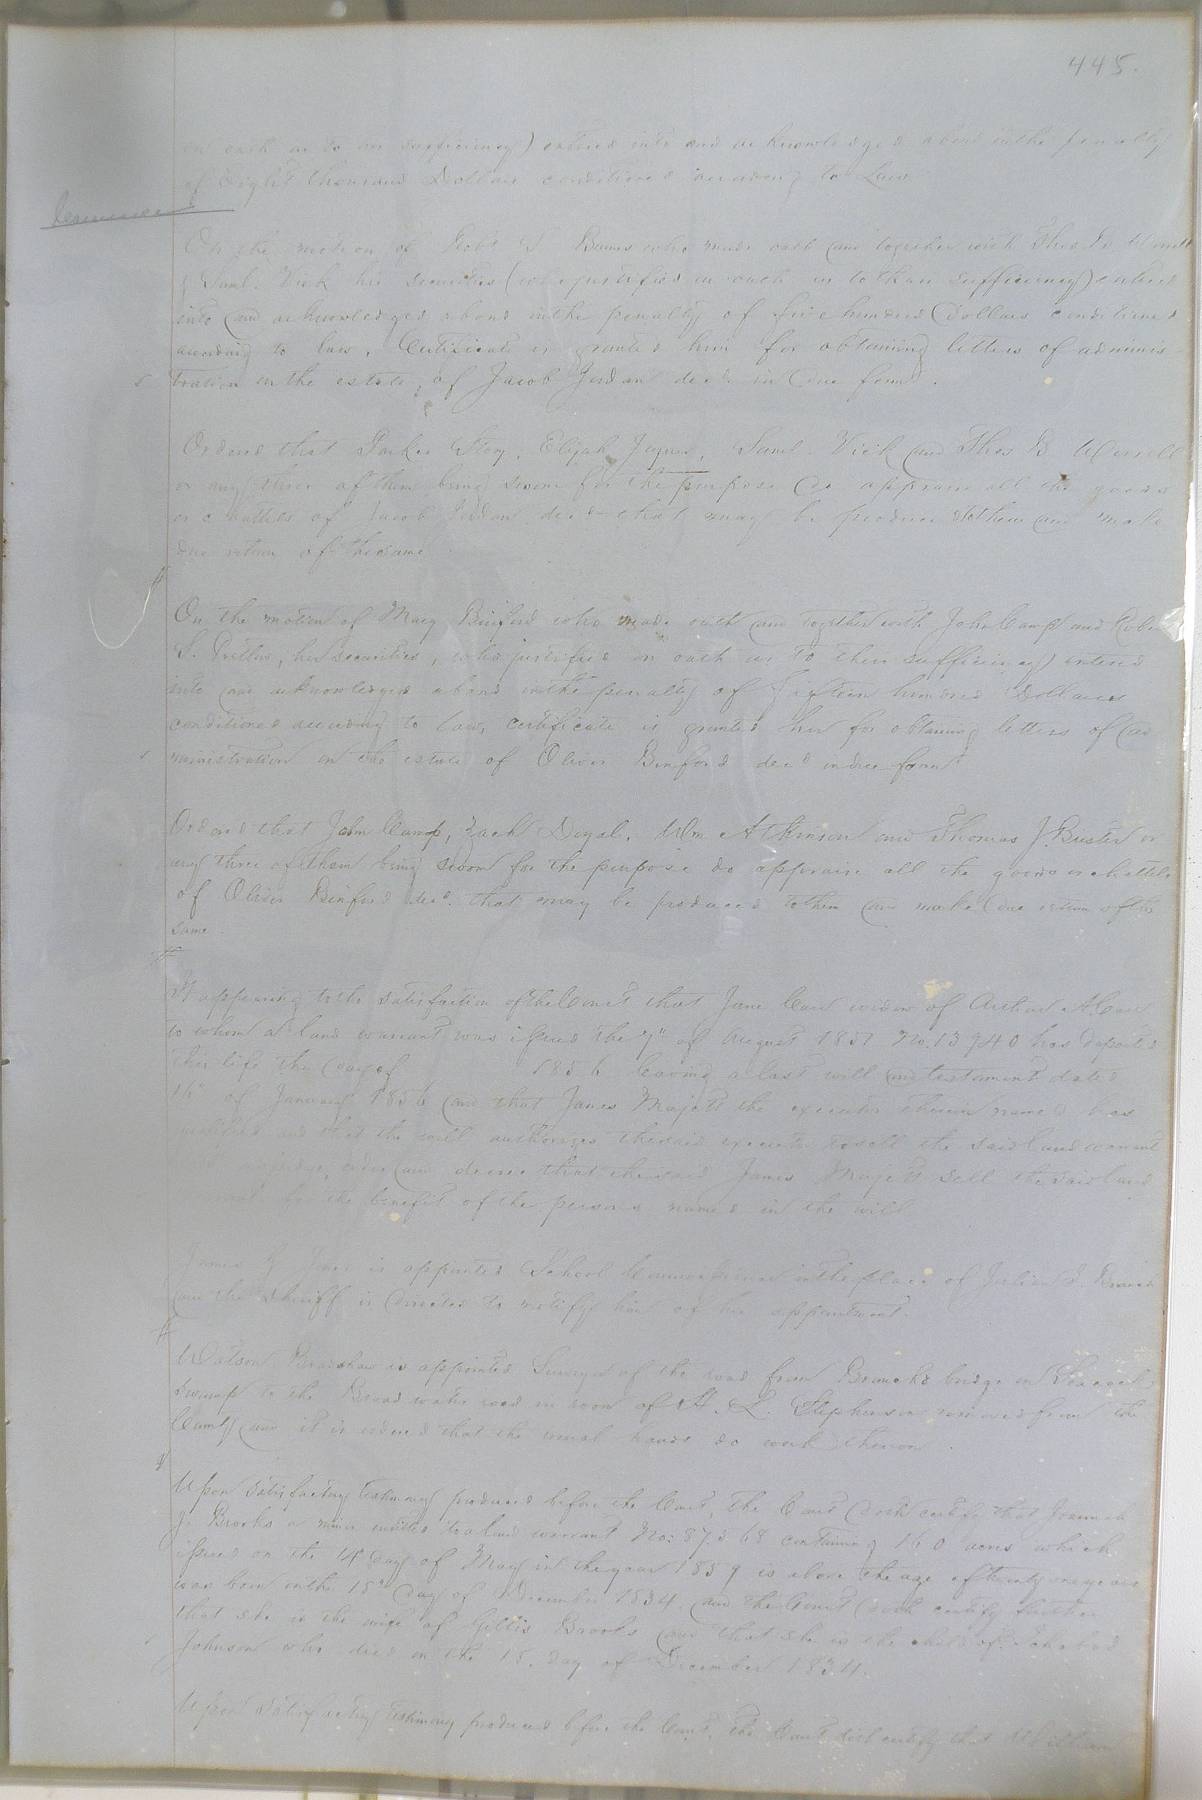 445.
on oath as to his sufficiency) entered into and acknowledged a bond in the penalty
of Eight thousand Dollars conditioned according to Law
On the motion of Robt S. Barnes who made oath and together with Thos B. Worrell
& Saml. Vick his securities (who justified on oath as to their sufficiency) entered
into and acknowledged a bond in the penalty of five hundred Dollars conditioned
according to law, Certificate is granted him for obtaining letters of adminis-
tration on the estate of Jacob Jordan decd. in due form.
Ordered that Parker Story, Elijah Joyner, Saml. Vick and Thos B. Worrell
or any three of them being sworn for the purpose do appraise all the goods
or chattles of Jacob Jordan decd that may be produced to them and make
due return of the same
On the motion of Mary Binford who made oath and together with John Camp and Robt
S. Prettlow, her securities, who justified on oath as to their sufficiency) entered
into and acknowledged a bond in the penalty of fifteen hundred Dollars
conditioned according to law, certificate is granted her for obtaining letters of ad
ministration on the estate of Oliver Binford decd in due form
Ordered that John Camp, Zach Doyal, Wm Atkinson and Thomas J. Buster or
any three of them being sworn for the purpose do appraise all the goods or chattels
of Oliver Binford decd. that may be produced to them and make due return of the
same.
It appearing to the satisfaction of the Court that Jane Carr widow of Arthur A Carr
to whom a land warrant was issued the 7" of August 1851 No. 13940 has departed
this life the day of 1856 leaving a last will and testament dated
16" of January 1856 and that James Majett the executor therein named has
qualified and that the will authorizes the said executor to sell the said land warrant
order and decree that the said James Majett sell the said land
for the benefit of the persons named in the will
James is appointed School Commissioner in the place of Julian
and the Sheriff is directed to notify him of his appointment.
Watson Bradshaw is appointed Surveyor of the road from Branch's bridge on
swamp to the Broad water road in room of H. L. Stephenson removed from the
County and it is ordered that the usual hands do work thereon.
Upon satisfactory testimony produced before the Court, the Court doth certify that Joannah
J. Brooks a minor entitled to a land warrant No: 87.568 containing 160 acres which
issued on the 14 day of May in the year 1859 is above the age of twenty one years
was born on the 15" day of December 1834, and the Court doth certify further
that she is the wife of Gillis Brooks and that she is the child of
Johnson who died on the 15. day of December 1834.
Upon satisfactory testimony produced before the Court, the Court doth certify that William